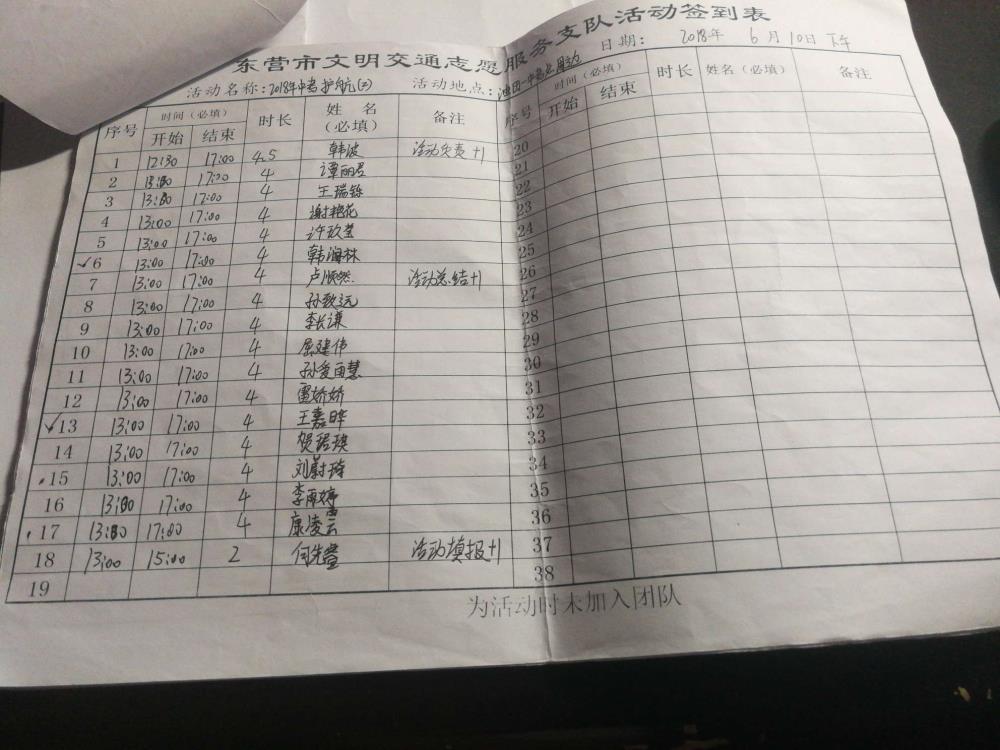 东营市文明交通志愿服务支队活动签到表
活动名称:2018年中考护航(2) 活动地点: 日期: 2018年 6月10日 下午
序号 时间(必填) 时长 姓名(必填) 备注 序号 时间(必填) 时长 姓名(必填) 备注
开始 结束 开始 结束
1 12:30 17:00 4.5 韩波 活动负责+1 20
2 13:00 17:00 4 谭丽君 21
3 13:00 17:00 4 王瑞铄 22
4 13:00 17:00 4 谢艳花 23
5 13:00 17:00 4 许玖莹 24
✓6 13:00 17:00 4 韩海林 25
7 13:00 17:00 4 卢顺然 活动总结+1 26
8 13:00 17:00 4 孙致远 27
9 13:00 17:00 4 李长谦 28
10 13:00 17:00 4 屈建伟 29
11 13:00 17:00 4 30
12 13:00 17:00 4 雷娇娇 31
✓13 13:00 17:00 4 王嘉晔 32
14 13:00 17:00 4 33
15 13:00 17:00 4 刘蔚琦 34
16 13:00 17:00 4 李雨婷 35
17 13:00 17:00 4 康凌云 36
18 13:00 15:00 2 活动填报+1 37
19 38
为活动时未加入团队